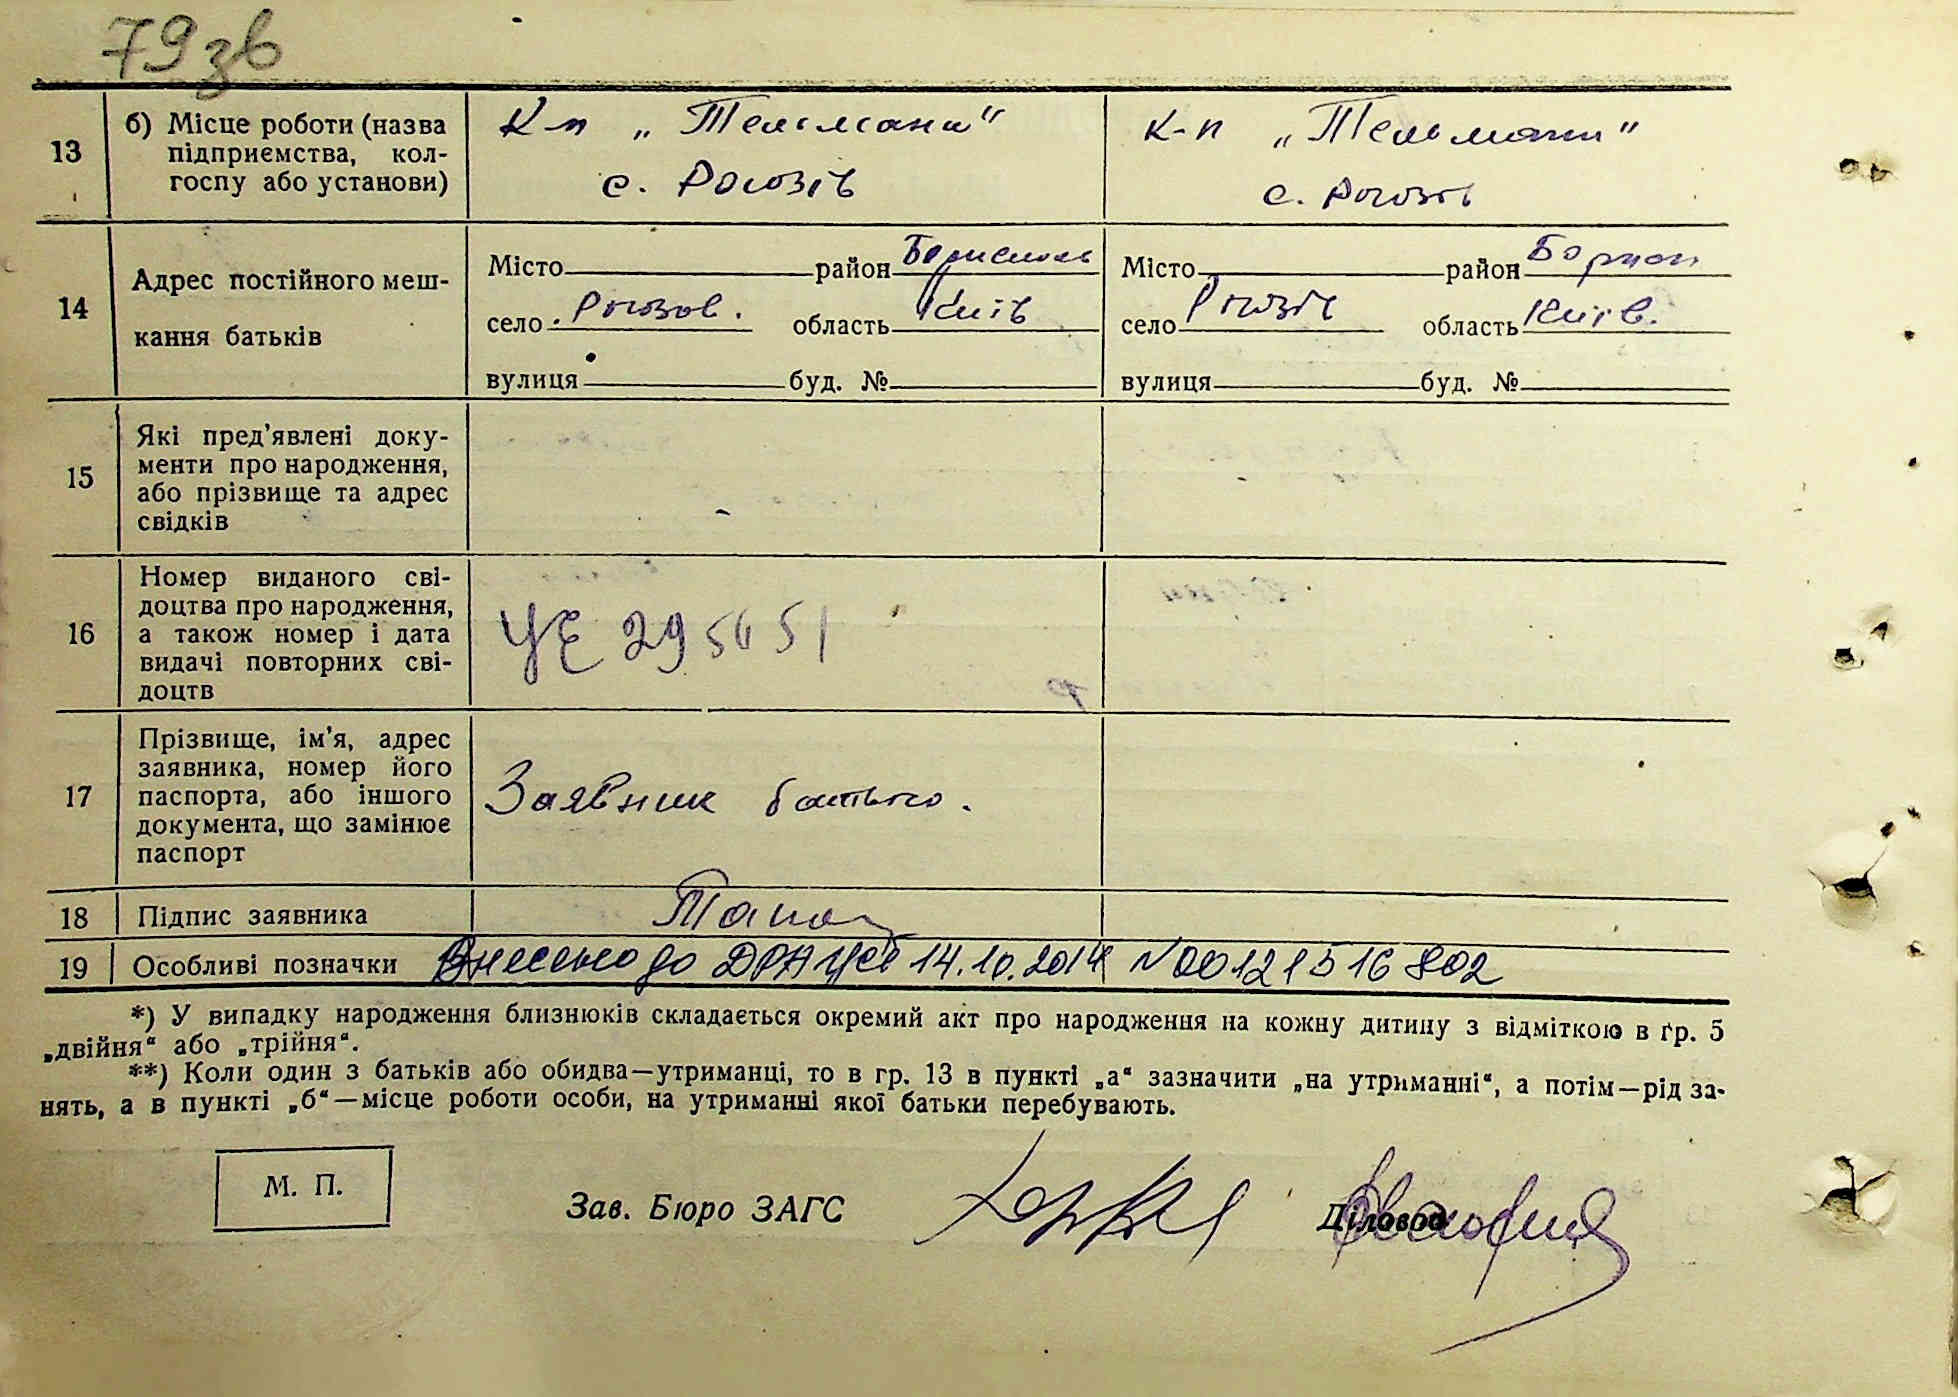 79зв
13
б) Місце роботи (назва
підприємства, кол-
госпу або установи)
К-п „Тельмана"
с. Рогозів
К-п „Тельмана"
с. Рогозів
14
Адрес постійного меш-
кання батьків
Місто район Бориспіль
село Рогозов. область Київ
вулиця буд. №
Місто район Борисп
село Рогозів область Київ.
вулиця буд. №
15
Які пред'явлені доку-
менти про народження,
або прізвище та адрес
свідків
16
Номер виданого сві-
доцтва про народження,
а також номер і дата
видачі повторних сві-
доцтв
17
Прізвище, ім'я, адрес
заявника, номер його
паспорта, або іншого
документа, що замінює
паспорт
Заявник батько.
18
Підпис заявника
19
Особливі позначки
Внесено до ДРАЦСГ 14.10.2014 N00121516802
*) У випадку народження близнюків складається окремий акт про народження на кожну дитину з відміткою в гр. 5
„двійня“ або „трійня“.
**) Коли один з батьків або обидва—утриманці, то в гр. 13 в пункті „а“ зазначити „на утриманні“, а потім—рід за-
нять, а в пункті „б“—місце роботи особи, на утриманні якої батьки перебувають.
М. П.
Зав. Бюро ЗАГС
Діловод